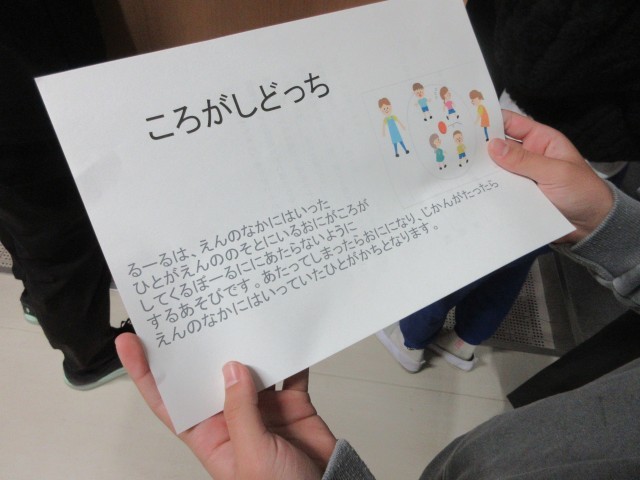 ころがしどっち
るーるは、えんのなかにはいった
ひとがえんののそとにいるおにがころが
してくるぼーるににあたらないように
するあそびです。あたってしまったらおにになり、じかんがたったら
えんのなかにはいっていたひとがかちとなります。